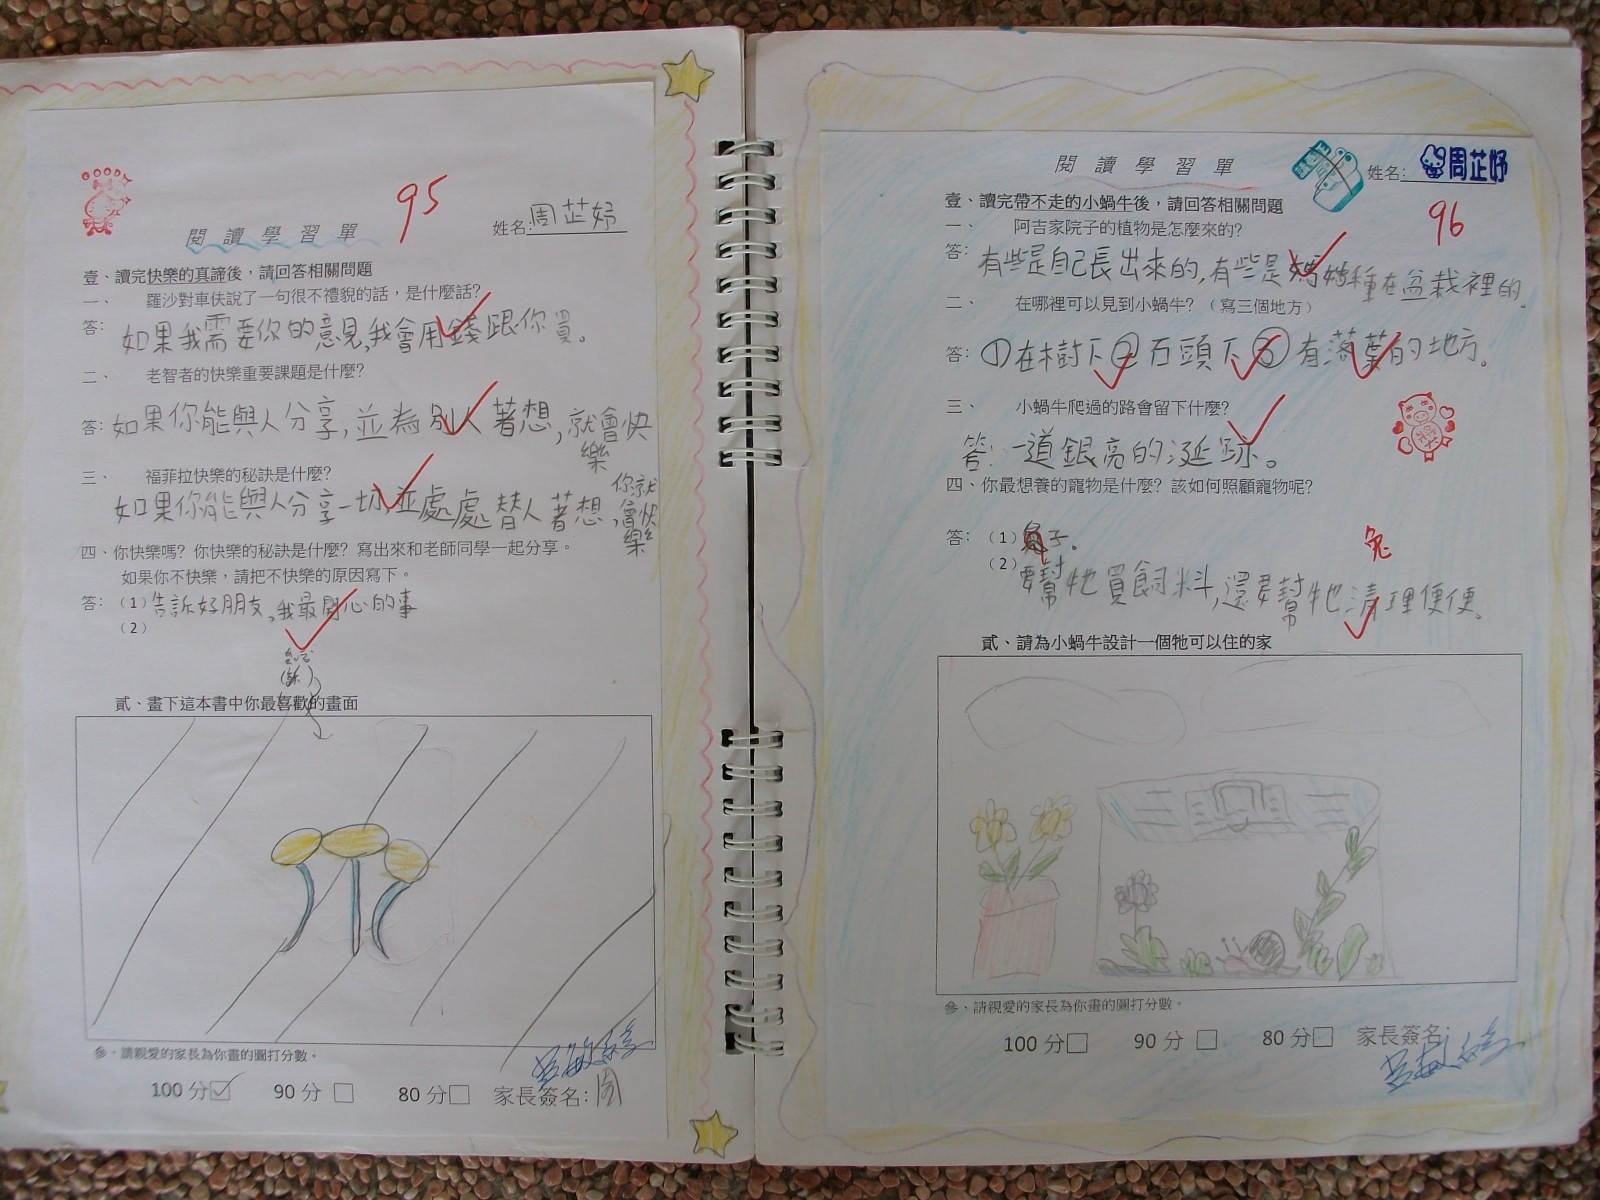 95
閱讀學習單
姓名:周芷妤
壹、讀完快樂的真諦後，請回答相關問題
一、 羅沙對車伕說了一句很不禮貌的話，是什麼話?
答: 如果我需要你的意見,我會用錢跟你買。
二、 老智者的快樂重要課題是什麼?
答: 如果你能與人分享,並為別人著想,就會快樂
三、 福菲拉快樂的秘訣是什麼?
如果你能與人分享一切,並處處替人著想,你就會快樂
四、你快樂嗎? 你快樂的秘訣是什麼? 寫出來和老師同學一起分享。
如果你不快樂，請把不快樂的原因寫下。
答: (1) 告訴好朋友,我最開心的事
(2)
貳、畫下這本書中你最喜歡的畫面
參、請親愛的家長為你畫的圖打分數。
100 分 90 分 80 分 家長簽名: 周
閱讀學習單
姓名: 周芷妤
96
壹、讀完帶不走的小蝸牛後，請回答相關問題
一、 阿吉家院子的植物是怎麼來的?
答: 有些是自己長出來的,有些是媽媽種在盆栽裡的。
二、 在哪裡可以見到小蝸牛? (寫三個地方)
答: ①在樹下②石頭下③有落葉的地方。
三、 小蝸牛爬過的路會留下什麼?
答: 一道銀亮的涎跡。
四、你最想養的寵物是什麼? 該如何照顧寵物呢?
答: (1) 兔子。 兔
(2) 要幫牠買飼料,還要幫牠清理便便。
貳、請為小蝸牛設計一個牠可以住的家
參、請親愛的家長為你畫的圖打分數。
100 分 90 分 80 分 家長簽名: